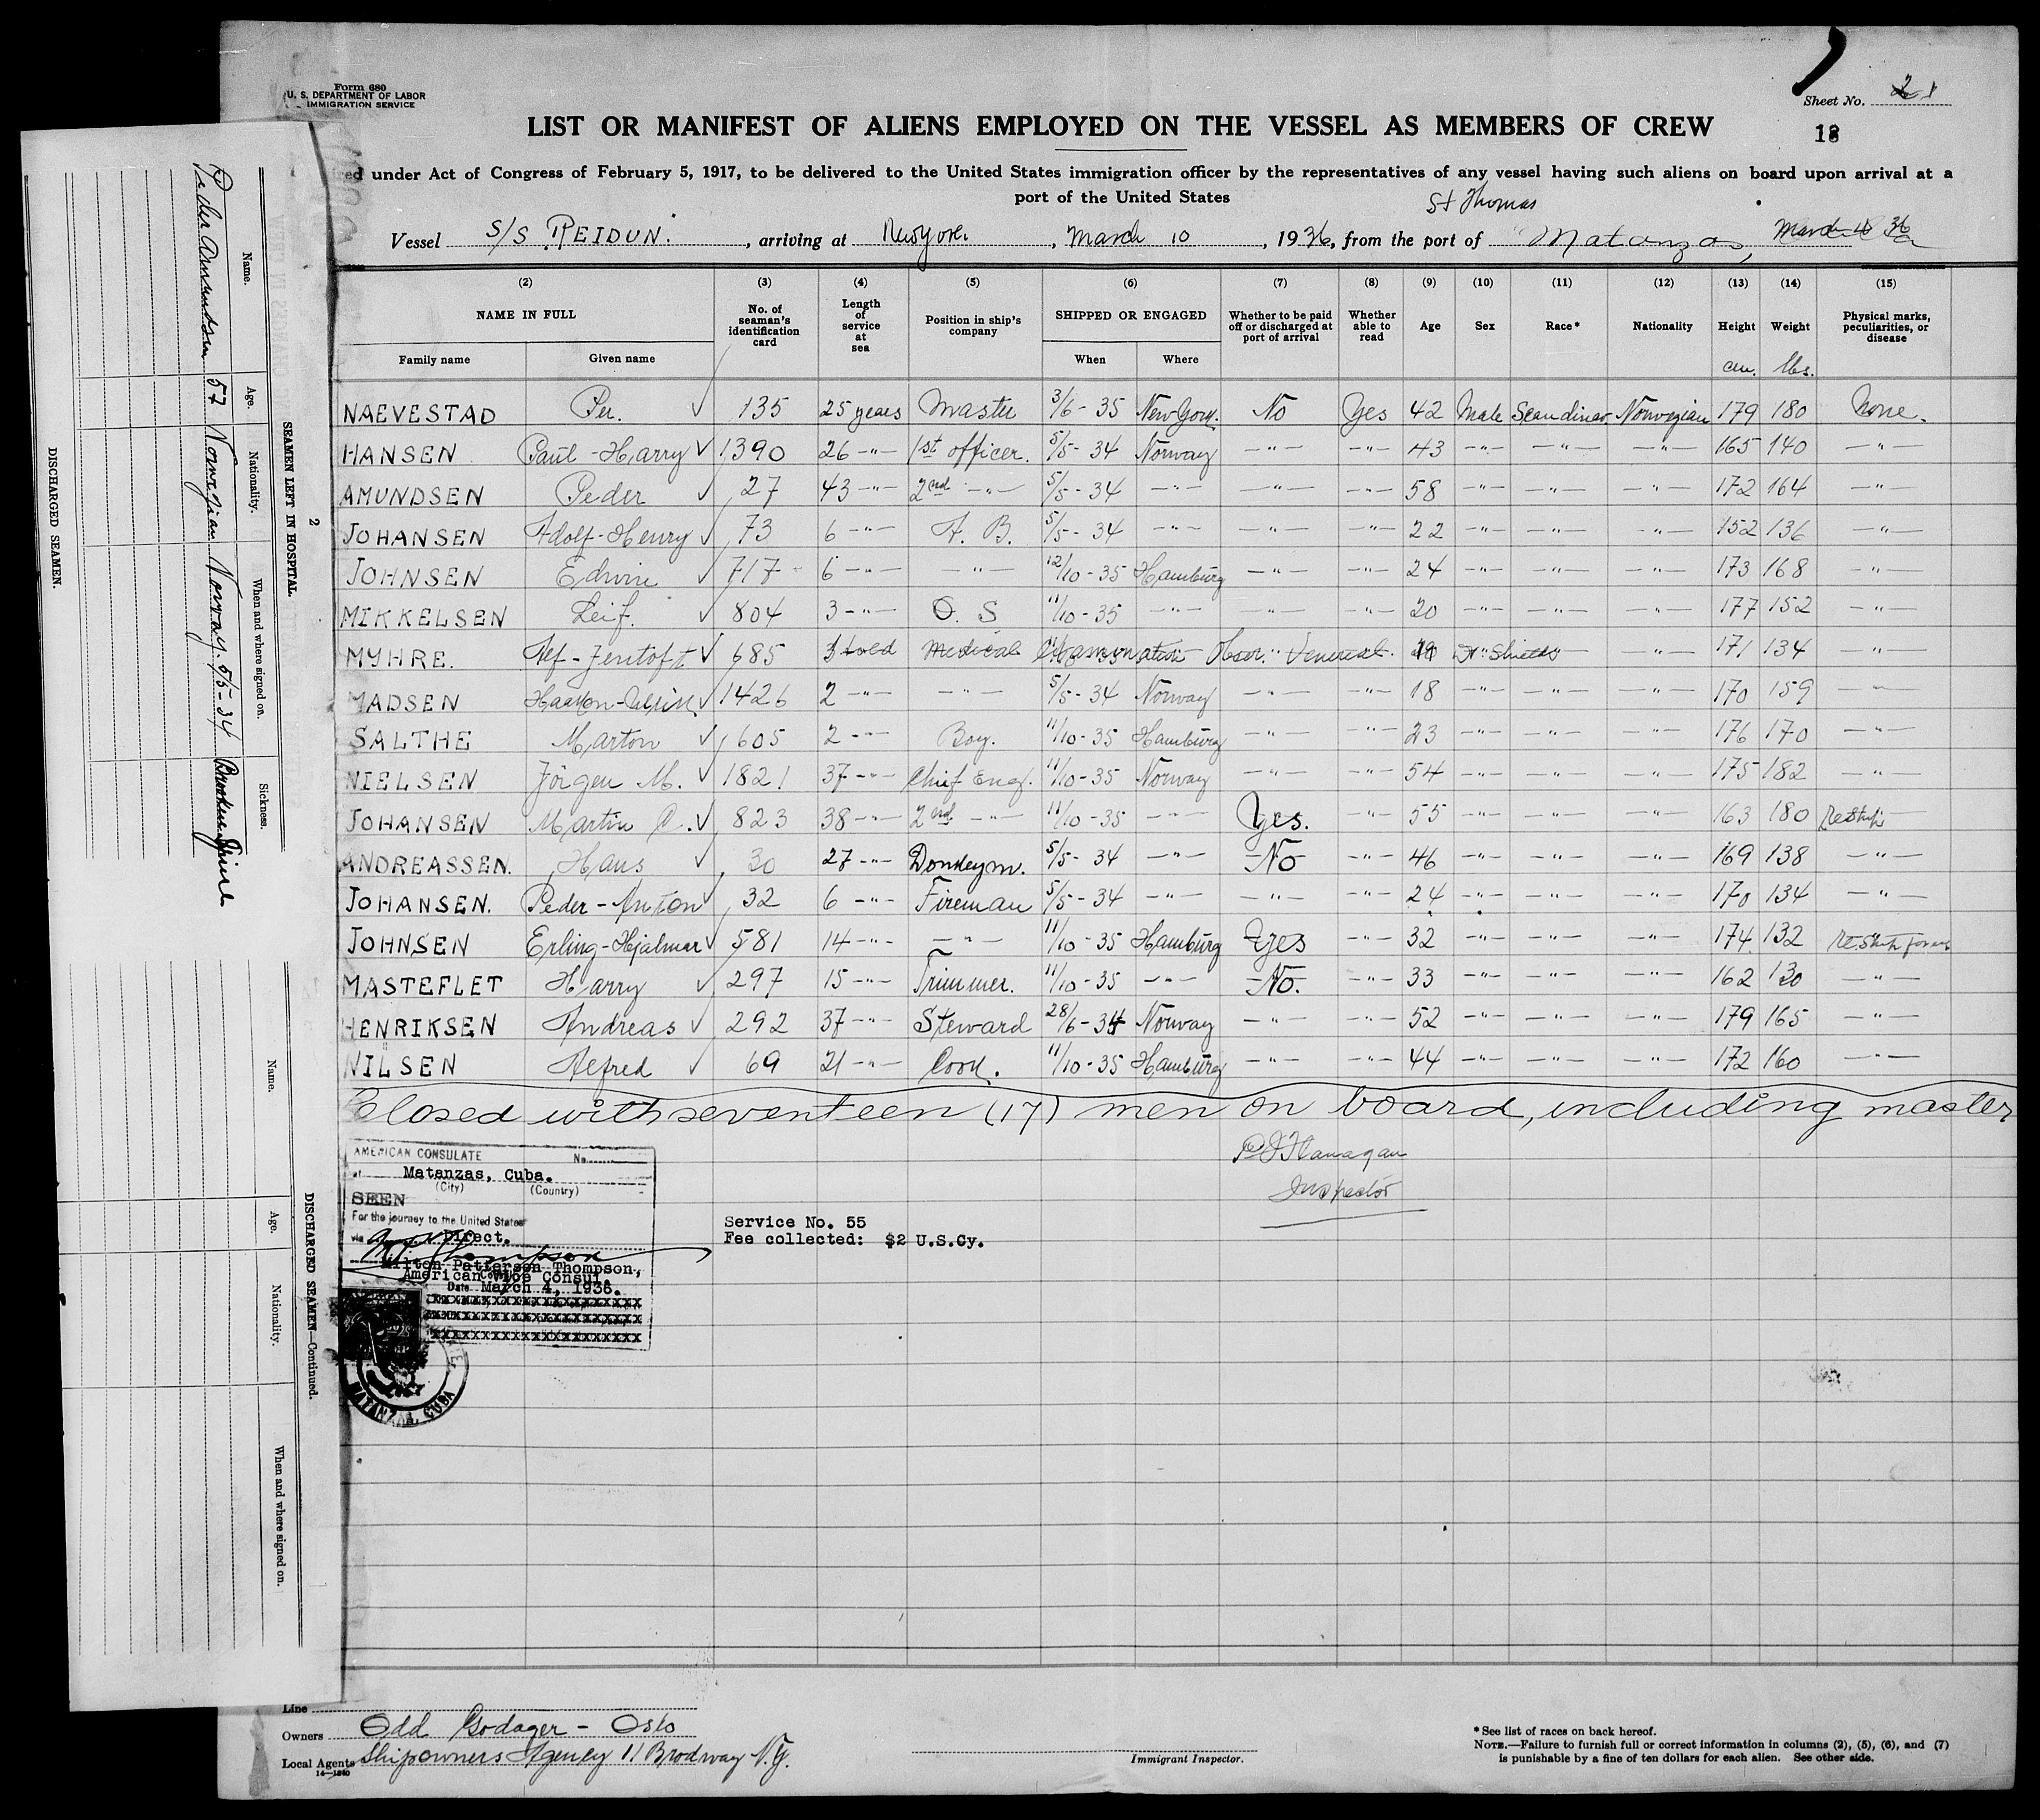 Form 680
U. S. DEPARTMENT OF LABOR
IMMIGRATION SERVICE
Sheet No. 1
LIST OR MANIFEST OF ALIENS EMPLOYED ON THE VESSEL AS MEMBERS OF CREW
18
ed under Act of Congress of February 5, 1917, to be delivered to the United States immigration officer by the representatives of any vessel having such aliens on board upon arrival at a
port of the United States
St Thomas
Vessel S/S REIDUN., arriving at New York, March 10, 1936, from the port of Matanzas,
(2) (3) (4) (5) (6) (7) (8) (9) (10) (11) (12) (13) (14) (15)
NAME IN FULL No. of seaman's identification card Length of service at sea Position in ship's company SHIPPED OR ENGAGED Whether to be paid off or discharged at port of arrival Whether able to read Age Sex Race* Nationality Height Weight Physical marks, peculiarities, or disease
Family name Given name When Where cm. lbs.
NAEVESTAD Per. ✓ 135 25 years Master 3/6-35 New York. No Yes 42 Male Scandinav. Norwegian 179 180 None.
HANSEN Paul-Harry ✓ 1390 26 -"- 1st officer. 5/5-34 Norway -"- -"- 43 -"- -"- -"- 165 140 -"-
AMUNDSEN Peder ✓ 27 43 -"- 2nd -"- 5/5-34 -"- -"- -"- 58 -"- -"- -"- 172 164 -"-
JOHANSEN Adolf-Henry ✓ 73 6 -"- A. B. 5/5-34 -"- -"- -"- 22 -"- -"- -"- 152 136 -"-
JOHNSEN Edvin ✓ 717 6 -"- -"- 12/10-35 Hamburg -"- -"- 24 -"- -"- -"- 173 168 -"-
MIKKELSEN Leif. ✓ 804 3 -"- O. S 11/10-35 -"- -"- -"- 20 -"- -"- -"- 177 152 -"-
MYHRE. Alf-Jentoft ✓ 685 3 Medical Examination Venereal 19 -"- 171 134 -"-
MADSEN ✓ 1426 2 -"- -"- 5/5-34 Norway -"- -"- 18 -"- -"- -"- 170 159 -"-
SALTHE Marton ✓ 605 2 -"- Boy. 11/10-35 Hamburg -"- -"- 23 -"- -"- -"- 176 170 -"-
NIELSEN Jörgen M. ✓ 1821 37 -"- Chief Eng. 11/10-35 Norway -"- -"- 54 -"- -"- -"- 175 182 -"-
JOHANSEN Martin A. ✓ 823 38 -"- 2nd -"- 11/10-35 -"- Yes. -"- 55 -"- -"- -"- 163 180 Reship
ANDREASSEN. Hans ✓ 30 27 -"- Donkeym. 5/5-34 -"- No -"- 46 -"- -"- -"- 169 138 -"-
JOHANSEN. Peder-Anton ✓ 32 6 -"- Fireman 5/5-34 -"- -"- -"- 24 -"- -"- -"- 170 134 -"-
JOHNSEN Erling-Hjalmar ✓ 581 14 -"- -"- 11/10-35 Hamburg Yes -"- 32 -"- -"- -"- 174 132 Reship
MASTEFLET Harry ✓ 297 15 -"- Trimmer. 11/10-35 -"- No. -"- 33 -"- -"- -"- 162 130 -"-
HENRIKSEN Andreas ✓ 292 37 -"- Steward 28/6-34 Norway -"- -"- 52 -"- -"- -"- 179 165 -"-
NILSEN Alfred ✓ 69 21 -"- Cook. 11/10-35 Hamburg -"- -"- 44 -"- -"- -"- 172 160 -"-
Closed with seventeen (17) men on board, including master
P J Flanagan
Inspector
AMERICAN CONSULATE No.
at Matanzas, Cuba.
(City) (Country)
SEEN
For the journey to the United States
via Direct.
Milton Patterson Thompson,
American Vice Consul.
Date March 4, 1936.
MATANZAS, CUBA
Service No. 55
Fee collected: $2 U.S.Cy.
Line
Owners Odd Godager - Oslo
Local Agents Shipowners Agency 11 Brodway N.Y.
14-1240
Immigrant Inspector.
* See list of races on back hereof.
NOTE.—Failure to furnish full or correct information in columns (2), (5), (6), and (7)
is punishable by a fine of ten dollars for each alien. See other side.
2
SEAMEN LEFT IN HOSPITAL.
Name. Age. Nationality. When and where signed on. Sickness.
Peder Amundsen 57 Norwegian Norway. 5/5-34 Broken
DISCHARGED SEAMEN.
DISCHARGED SEAMEN—Continued.
Name. Age. Nationality. When and where signed on.